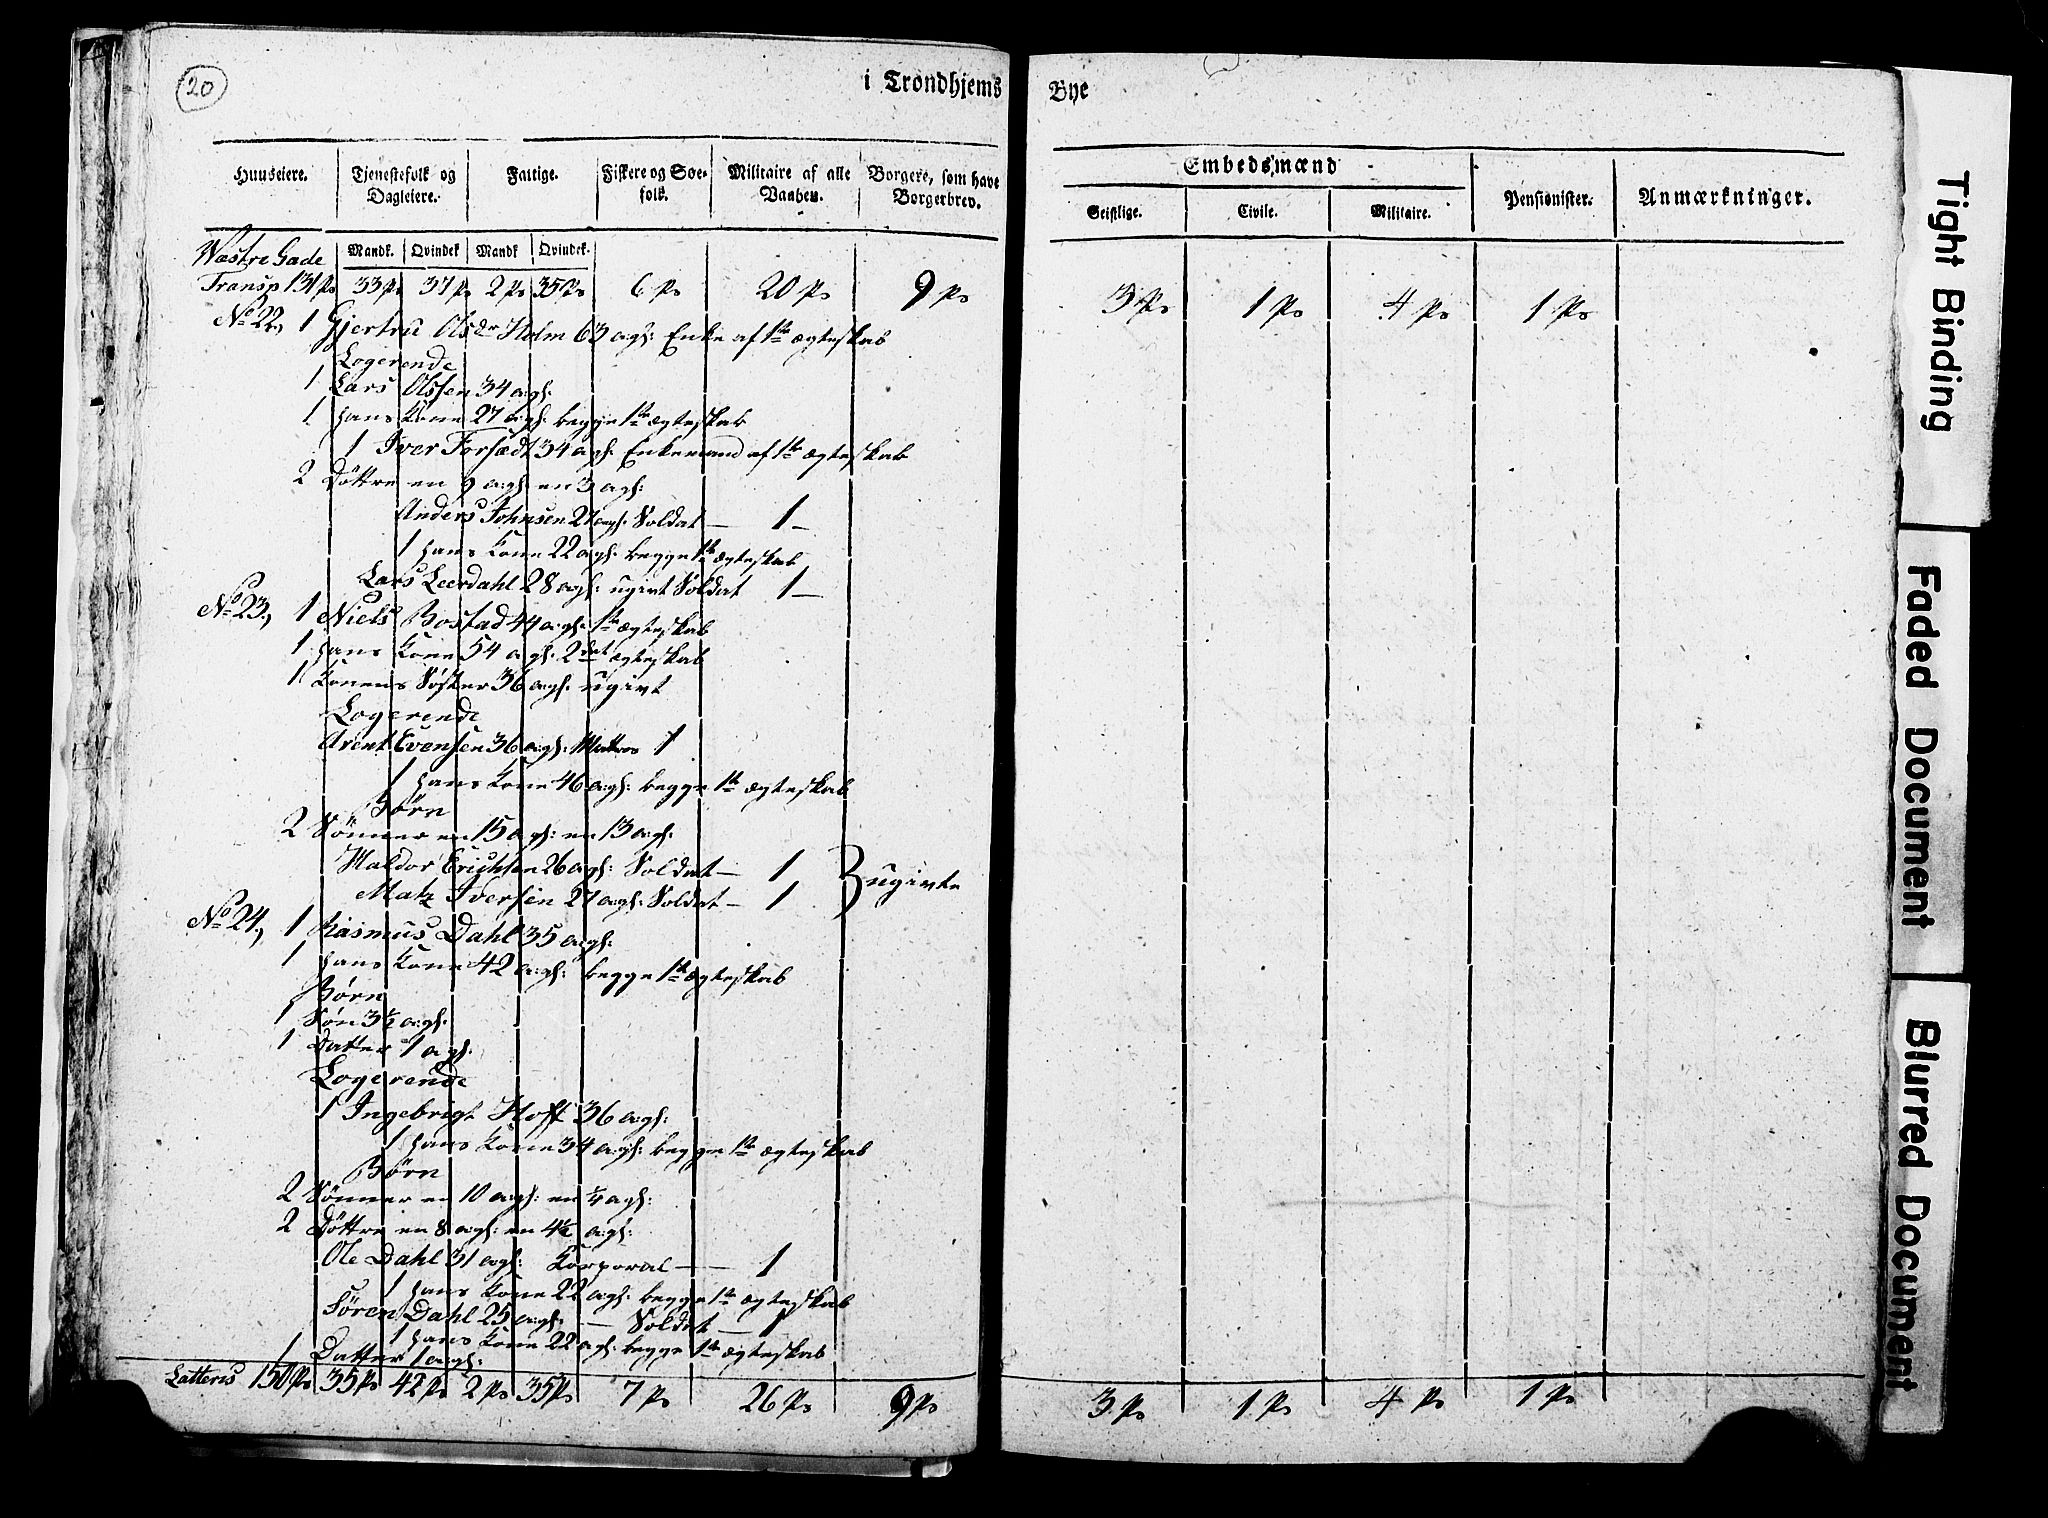 20
i Trondhjems Bye
Huuseiere. Tjenestefolk og Dagleiere. Fattige. Fiskere og Søefolk. Militaire af alle Vaaben. Borgere, som have Borgerbrev. Embedsmænd Pensionister. Anmærkninger.
Geistlige. Civile. Militaire.
Mandk. Qvindek Mandk Qvindek.
Wæstre Gade
Transp 131 Ps 33 Ps 37 Ps 2 Ps 35 Ps 6 Ps 20 Ps 9 Ps 3 Ps 1 Ps 4 Ps 1 Ps
No 22, 1 Gjertru Olsdr Holm 63 agl: Enke af 1te ægteskab
Logerende
1 Lars Olssen 34 agl:
1 hans Kone 27 agl: begge 1te ægteskab
1 Iver Forsædt 34 agl: Enkemand af 1te ægteskab
2 Døttre en 9 agl: en 3 agl:
Anders Johnsen 27 agl: Soldat — 1 —
1 hans Kone 22 agl: begge 1te ægteskab
Lars Leerdahl 28 agl: ugivt Soldat 1 —
No 23, 1 Niels Bostad 44 agl: 1te ægteskab
1 hans Kone 54 agl: 2det ægteskab
1 Konens Søster 36 agl: ugivt
Logerende
Arent Evensen 36 agl: Matros 1
1 hans Kone 46 agl: begge 1te ægteskab
Børn
2 Sønner en 15 agl: en 13 agl:
Haldor Erichsen 26 agl: Soldat — 1
Matz Iversen 27 agl: Soldat — 1 } ugivte
No 24, 1 Rasmus Dahl 35 agl:
1 hans Kone 42 agl: begge 1te ægteskab
Børn
1 Søn 3½ agl:
1 Datter 1 agl:
Logerende
1 Ingebrigt Hoff 36 agl:
1 hans Kone 34 agl: begge 1te ægteskab
Børn
2 Sønner en 10 agl: en ¼ agl:
2 Døttre en 8 agl: en 4½ agl:
Ole Dahl 31 agl: Korporal — — 1
1 hans Kone 22 agl: begge 1te ægteskab
Søren Dahl 25 agl: — Soldat — 1
1 hans Kone 22 agl: begge 1te ægteskab
1 Datter 1 agl:
Latteris 150 Ps 35 Ps 42 Ps 2 Ps 35 Ps 7 Ps 26 Ps 9 Ps 3 Ps 1 Ps 4 Ps 1 Ps
Tight Binding
Faded Document
Blurred Document